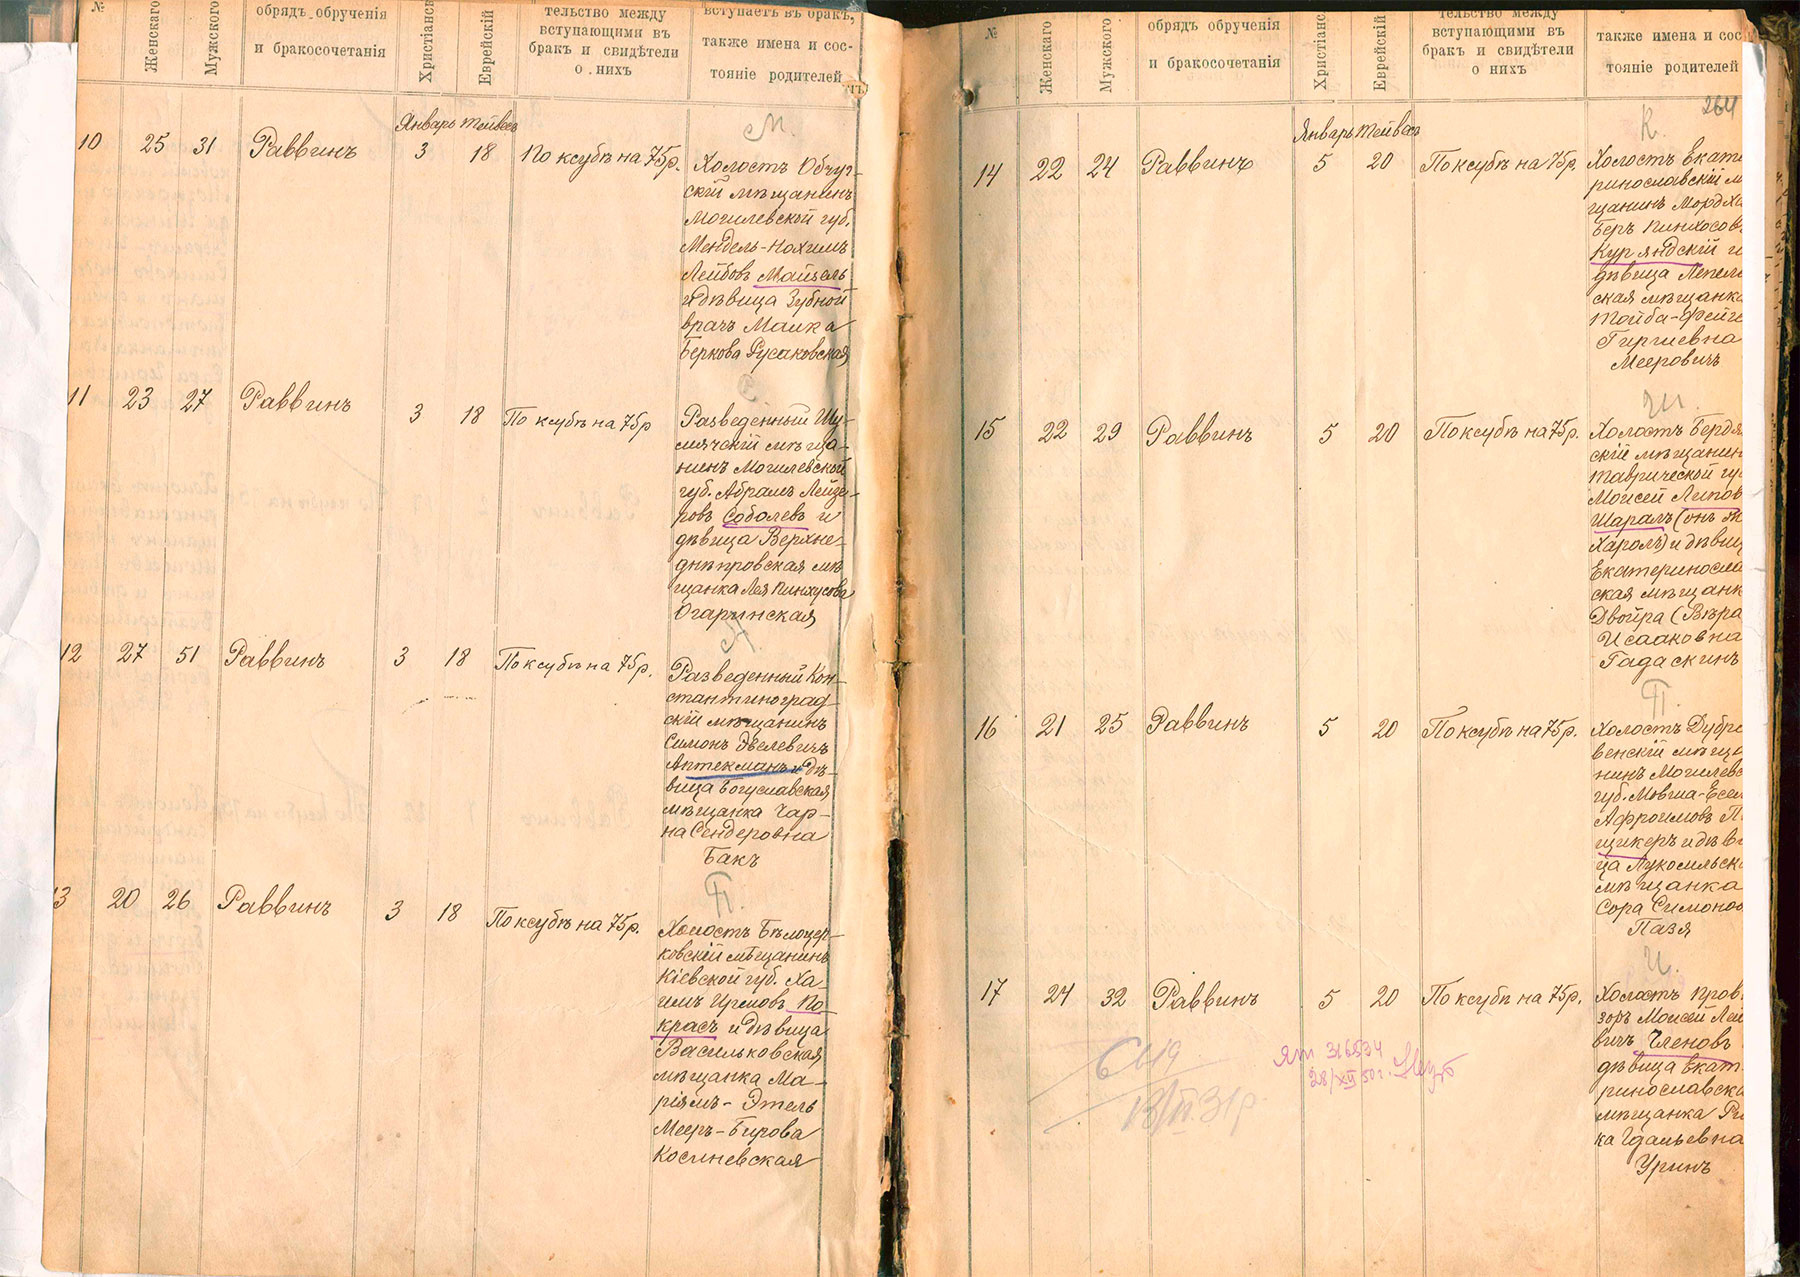 №
Женскаго
Мужского
обрядъ обрученія
и бракосочетанія
Христіанс
Еврейскій
тельство между
вступающими въ
бракъ и свидѣтели
о нихъ
вступаетъ въ бракъ,
также имена и сос-
тояніе родителей
Январь Тейвесъ
М.
10 25 31 Раввинъ 3 18 По ксубѣ на 75р.
Холостъ Обчуг-
скій мѣщанинъ
Могилевской губ.
Мендель-Нохимъ
Лейбовъ Майзель
и дѣвица Зубной
врачъ Малка
Беркова Русаковская
С.
11 23 27 Раввинъ 3 18 По ксубѣ на 75р
Разведенный Шу-
мячскій мѣща-
нинъ Могилевской
губ. Абрамъ Лейзе-
ровъ Соболевъ и
дѣвица Верхне-
днѣпровская мѣ
щанка Лея Пинхусова
Огаринская
А.
12 27 51 Раввинъ 3 18 По ксубѣ на 75р.
Разведенный Кон-
стантиноград-
скій мѣщанинъ
Симонъ Эвелевичъ
Аптекманъ и дѣ-
вица Богуславская
мѣщанка Чар-
на Сендеровна
Бакъ
П.
13 20 26 Раввинъ 3 18 По ксубѣ на 75р.
Холостъ Бѣлоцер-
ковскій мѣщанинъ
Кіевской губ. Ха-
имъ Ицковъ По-
красъ и дѣвица
Васильковская
мѣщанка Ма-
ріямъ-Этель
Мееръ-Берова
Косиневская
№
Женскаго
Мужского
обрядъ обрученія
и бракосочетанія
Христіанс
Еврейскій
тельство между
вступающими въ
бракъ и свидѣтели
о нихъ
также имена и сос
тояніе родителей
264
Январь Тейвесъ
К.
14 22 24 Раввинъ 5 20 По ксубѣ на 75р.
Холостъ Екате
ринославскій м
щанинъ Мордхе
Беръ Пинхосов
Курляндскій и
дѣвица Лепел
ская мѣщанка
Тойба-Фейге
Гиршевна
Мееровичъ
Ш.
15 22 29 Раввинъ 5 20 По ксубѣ на 75р.
Холостъ Бердя
скій мѣщанин
Таврической гу
Моисей Липов
Шаралъ (онъ ж
Харолъ) и дѣви
Екатериносла
ская мѣщанк
Двойра (Вѣра
Исааковна
Гадаскинъ
П.
16 21 25 Раввинъ 5 20 По ксубѣ на 75р.
Холостъ Дубро
венскій мѣща
нинъ Могилевс
губ. Мовша-Есел
Афроимовъ П
щикеръ и дѣв
ца Лукомльск
мѣщанка
Сора Симонов
Пазя
Ч.
17 24 32 Раввинъ 5 20 По ксубѣ на 75р.
Холостъ Прови
зоръ Моисей Лей
вичъ Членовъ
дѣвица Екате
ринославска
мѣщанка Ри
ка Гдальевна
Уринъ
ЯТ 316534
28/XII 50г.